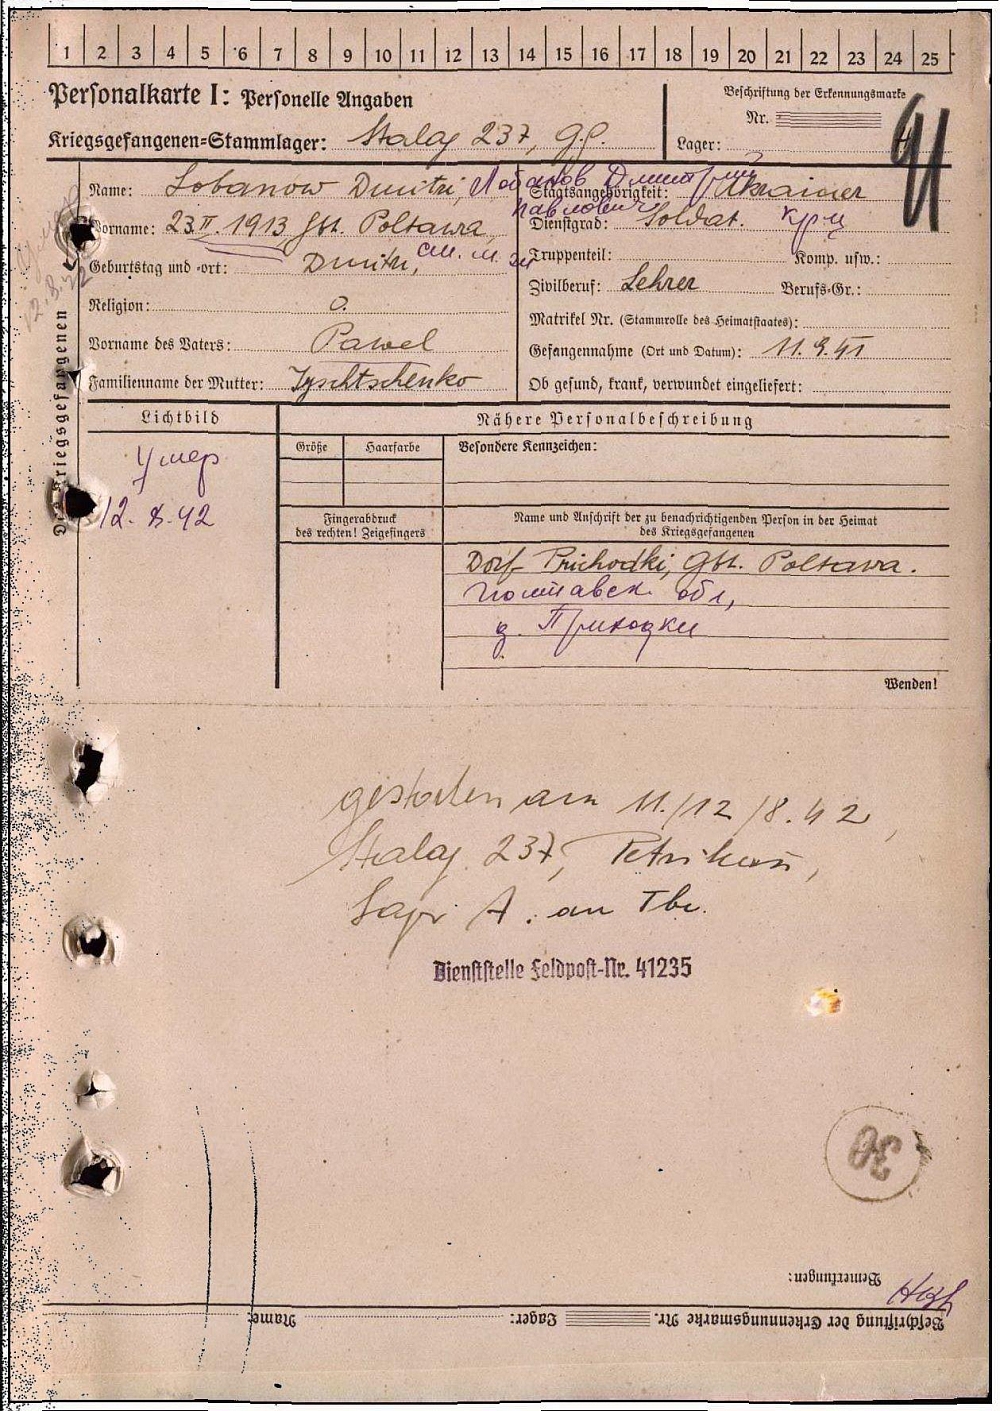 1 2 3 4 5 6 7 8 9 10 11 12 13 14 15 16 17 18 19 20 21 22 23 24 25
Personalkarte I: Personelle Angaben
Kriegsgefangenen-Stammlager: Stalag 237,
Beschriftung der Erkennungsmarke
Nr.
Lager:
Name: Lobanow Dmitri, Лобанов Дмитрий
Павлович
Vorname: 23.II.1913 Gbt. Poltawa
Geburtstag und -ort: Dmitri,
Religion: o.
Vorname des Vaters: Pawel
Familienname der Mutter: Tyschtschenko
Staatsangehörigkeit: Ukrainer
Dienstgrad: Soldat. кр-ц
Truppenteil: Komp. usw.:
Zivilberuf: Lehrer Berufs-Gr.:
Matrikel Nr. (Stammrolle des Heimatstaates):
Gefangennahme (Ort und Datum): 11.9.41
Ob gesund, krank, verwundet eingeliefert:
Des Kriegsgefangenen
12.8.42
Lichtbild
Умер
12.8.42
Nähere Personalbeschreibung
Größe Haarfarbe Besondere Kennzeichen:
Fingerabdruck
des rechten! Zeigefingers
Name und Anschrift der zu benachrichtigenden Person in der Heimat
des Kriegsgefangenen
Dorf Prichodki, Gbt. Poltawa.
Полтавск. обл,
д. Приходки
Wenden!
gestorben am 11./12/8.42,
Stalag 237, Petrikau,
Lager A. an Tbc.
Dienststelle Feldpost-Nr. 41235
30
Bemerkungen:
Beschriftung der Erkennungsmarke Nr. Lager: Name: